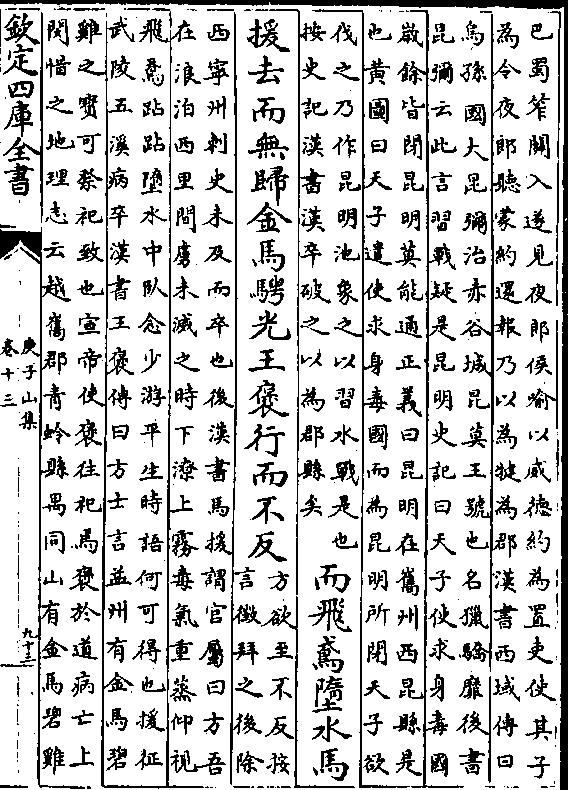 巴蜀筰關入遂見夜郎侯喻以威德約為置吏使其子
為令夜郎聽蒙約還報乃以為犍為郡漢書西域傳曰
烏孫國大昆彌治赤谷城昆莫王號也名獵驕靡後書
昆彌云此言習戰疑是昆明史記曰天子使求身毒國
嵗餘皆閉昆明莫能通正義曰昆明在巂州西昆縣是
也黃圖曰天子遣使求身毒國而為昆明所閉天子欲
伐之乃作昆明池象之以習水戰是也
按史記漢書漢卒破之以為郡縣矣
而飛鳶墮水馬
援去而無歸金馬騁光王褒行而不反
方欲至不反按
言徵拜之後除
西寧州刺史未及而卒也後漢書馬援謂官屬曰方吾
在浪泊西里間虜未滅之時下潦上霧毒氣重蒸仰視
飛鳶跕跕墮水中臥念少游平生時語何可得也援征
武陵五溪病卒漢書王褒傳曰方士言益州有金馬碧
雞之寶可祭祀致也宣帝使褒往祀焉褒於道病亡上
閔惜之地理志云越巂郡青蛉縣禺同山有金馬碧雞
欽定四庫全書
庾子山集
卷十三
九十三